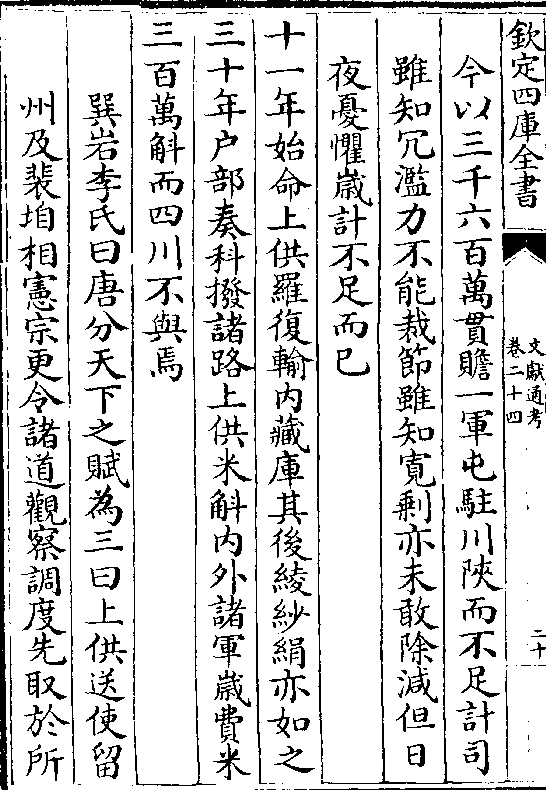 欽定四庫全書
文獻通考
卷二十四
二十
今以三千六百萬貫贍一軍屯駐川陜而不足計司
雖知冗濫力不能裁節雖知寛剩亦未敢除減但日
夜憂懼嵗計不足而已
十一年始命上供羅復輸内藏庫其後綾紗絹亦如之
三十年户部奏科撥諸路上供米斛内外諸軍嵗費米
三百萬斛而四川不與焉
巽岩李氏曰唐分天下之賦為三曰上供送使留
州及裴垍相憲宗更令諸道觀察調度先取於所